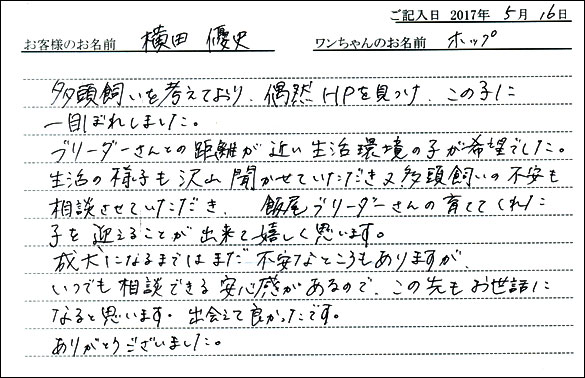 ご記入日 2017年 5月 16日
お客様のお名前 横田 優史 ワンちゃんのお名前 ホップ
多頭飼いを考えており、偶然HPを見つけ、この子に
一目ぼれしました。
ブリーダーさんとの距離が近い生活環境の子が希望でした。
生活の様子も沢山聞かせていただき又多頭飼いの不安も
相談させていただき、飯尾ブリーダーさんの育ててくれた
子を迎えることが出来て嬉しく思います。
成犬になるまではまだ不安なところもありますが、
いつでも相談できる安心感があるので、この先もお世話に
なると思います。出会えて良かったです。
ありがとうございました。